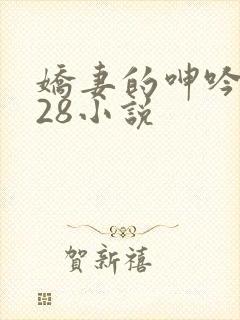 嬌妻的呻吟
28小說
賀新禧